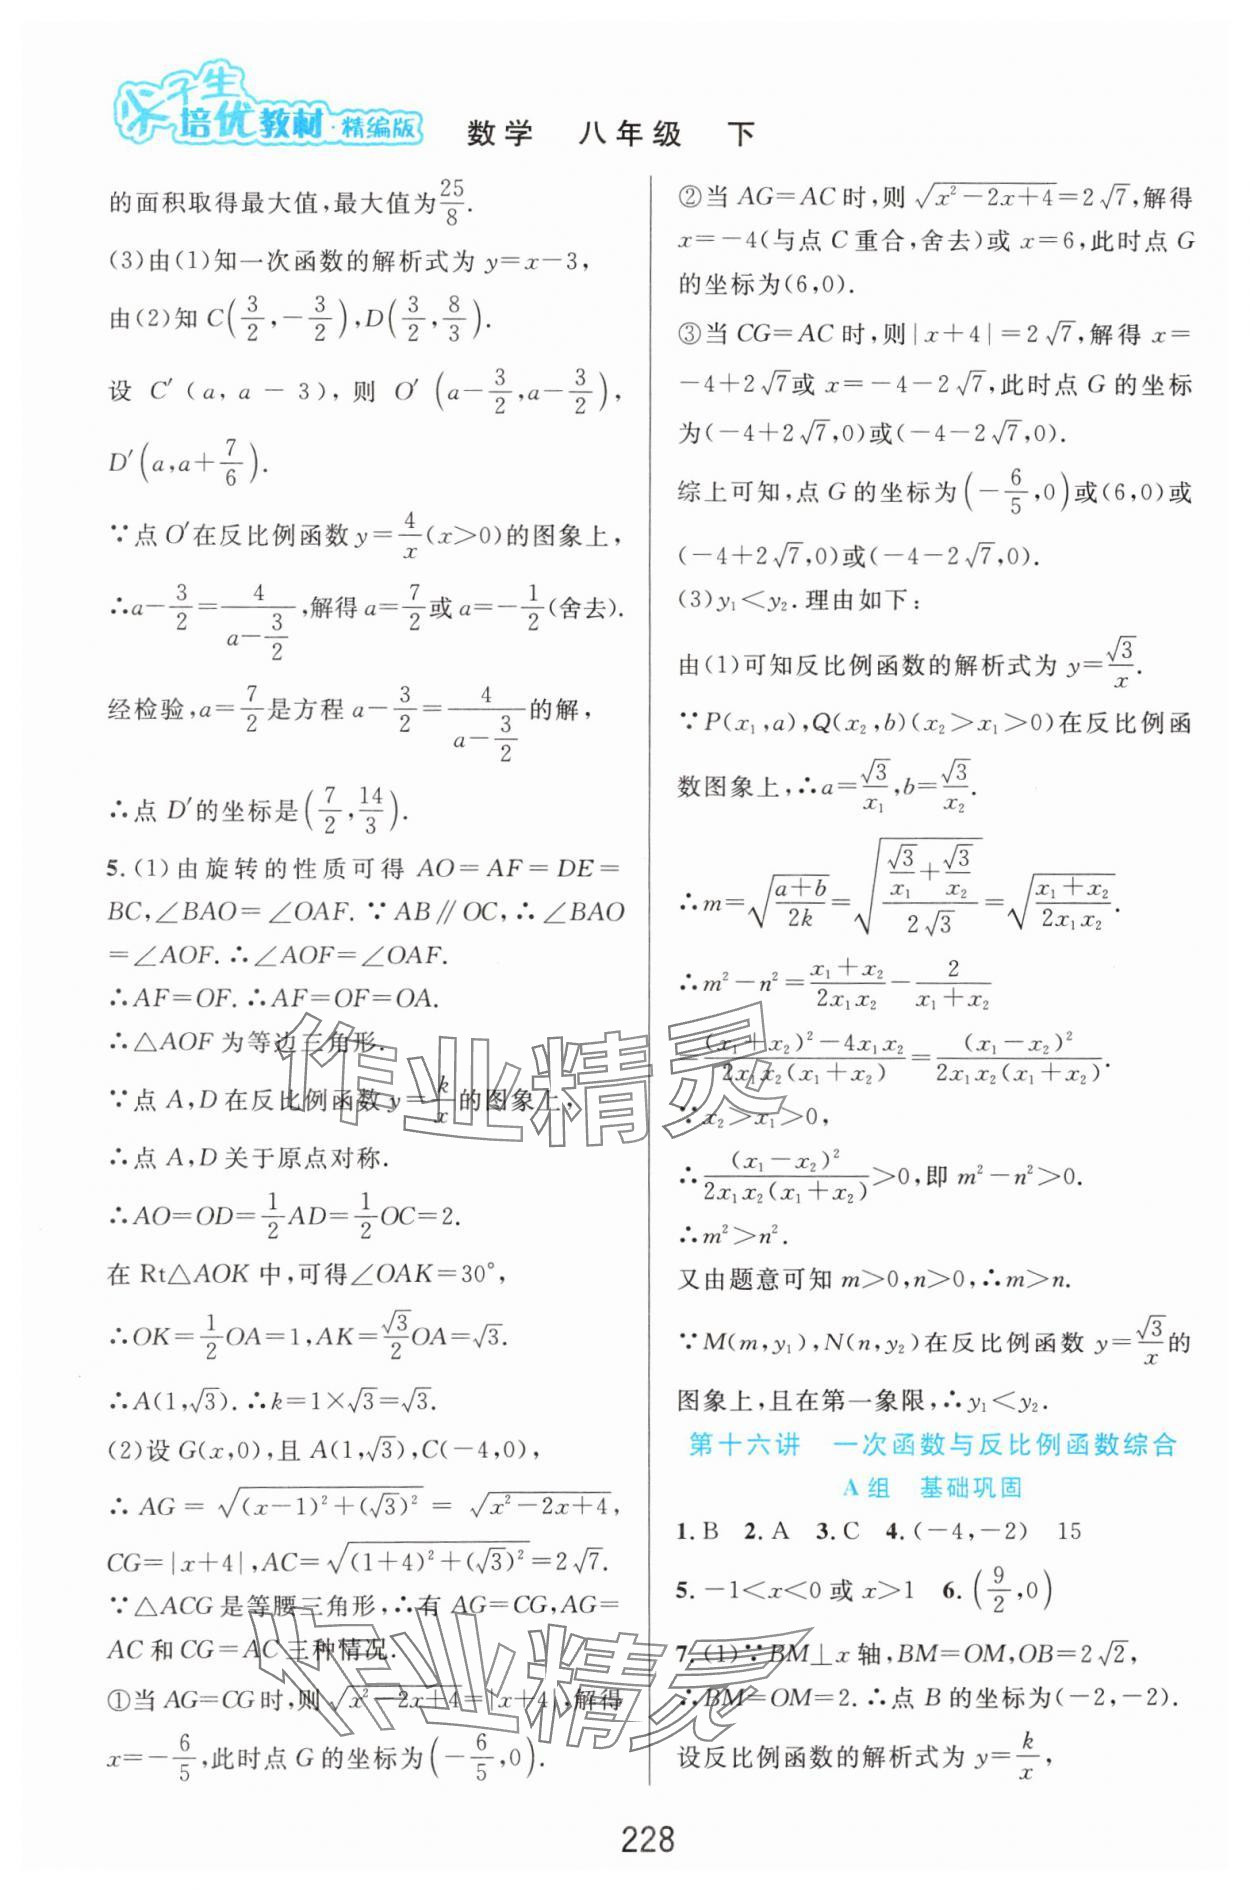 尖子生
培优教材·精编版
数学 八年级 下
的面积取得最大值,最大值为25/8.
(3)由(1)知一次函数的解析式为 y=x-3,
由(2)知 C(3/2,-3/2),D(3/2,8/3).
设 C′(a,a-3),则 O′(a-3/2,a-3/2),
D′(a,a+7/6).
∵点 O′在反比例函数 y=4/x(x>0)的图象上,
∴a-3/2=4/(a-3/2),解得 a=7/2或 a=-1/2(舍去).
经检验,a=7/2是方程 a-3/2=4/(a-3/2)的解,
∴点 D′的坐标是(7/2,14/3).
5.(1)由旋转的性质可得 AO=AF=DE=
BC,∠BAO=∠OAF.∵AB∥OC,∴∠BAO
=∠AOF.∴∠AOF=∠OAF.
∴AF=OF.∴AF=OF=OA.
∴△AOF 为等边三角形.
∵点 A,D 在反比例函数 y=k/x的图象上,
∴点 A,D 关于原点对称.
∴AO=OD=1/2AD=1/2OC=2.
在 Rt△AOK 中,可得∠OAK=30°,
∴OK=1/2OA=1,AK=√3/2OA=√3.
∴A(1,√3).∴k=1×√3=√3.
(2)设 G(x,0),且 A(1,√3),C(-4,0),
∴AG=√((x-1)²+(√3)²)=√(x²-2x+4),
CG=|x+4|,AC=√((1+4)²+(√3)²)=2√7.
∵△ACG 是等腰三角形,∴有 AG=CG,AG=
AC 和 CG=AC 三种情况.
①当 AG=CG 时,则√(x²-2x+4)=|x+4|,解得
x=-6/5,此时点 G 的坐标为(-6/5,0).
②当 AG=AC 时,则√(x²-2x+4)=2√7,解得
x=-4(与点 C 重合,舍去)或 x=6,此时点 G
的坐标为(6,0).
③当 CG=AC 时,则|x+4|=2√7,解得 x=
-4+2√7或 x=-4-2√7,此时点 G 的坐标
为(-4+2√7,0)或(-4-2√7,0).
综上可知,点 G 的坐标为(-6/5,0)或(6,0)或
(-4+2√7,0)或(-4-2√7,0).
(3)y₁<y₂.理由如下:
由(1)可知反比例函数的解析式为 y=√3/x.
∵P(x₁,a),Q(x₂,b)(x₂>x₁>0)在反比例函
数图象上,∴a=√3/x₁,b=√3/x₂.
∴m=√((a+b)/2k)=√((√3/x₁+√3/x₂)/2√3)=√((x₁+x₂)/2x₁x₂).
∴m²-n²=(x₁+x₂)/2x₁x₂-2/(x₁+x₂)
=((x₁+x₂)²-4x₁x₂)/2x₁x₂(x₁+x₂)=(x₁-x₂)²/2x₁x₂(x₁+x₂).
∵x₂>x₁>0,
∴(x₁-x₂)²/2x₁x₂(x₁+x₂)>0,即 m²-n²>0.
∴m²>n².
又由题意可知 m>0,n>0,∴m>n.
∵M(m,y₁),N(n,y₂)在反比例函数 y=√3/x的
图象上,且在第一象限,∴y₁<y₂.
第十六讲 一次函数与反比例函数综合
A组 基础巩固
1.B 2.A 3.C 4.(-4,-2) 15
5.-1<x<0 或 x>1 6.(9/2,0)
7.(1)∵BM⊥x 轴,BM=OM,OB=2√2,
∴BM=OM=2.∴点 B 的坐标为(-2,-2).
设反比例函数的解析式为 y=k/x,
228
作业精灵
作业精灵